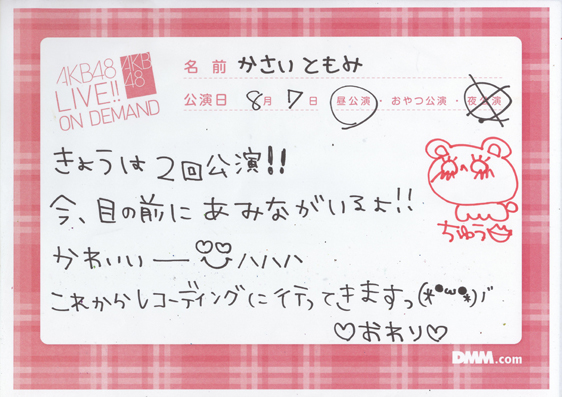 AKB48
LIVE!!
ON DEMAND
AKB
48
名前 かさいともみ
公演日 8月7日 昼公演・おやつ公演・夜公演
きょうは2回公演!!
今、目の前にあみながいるよ!!
かわいいーハハハ
これからレコーディングに行ってきますっ(*●ω●*)ﾉﾞ
♡おわり♡
ちゅう
DMM.com